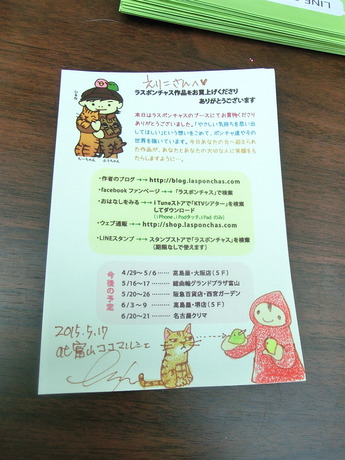 えりこさんへ♡
ラスポンチャス作品をお買上げくださり
ありがとうございます
本日はラスポンチャスのブースにてお買物くださり
ありがとうございました。「やさしい気持ちを思い出
してほしい」という想いをこめて、ポンチャ達やその
世界を描いています。今日あなたの元へ迎えられ
た作品が、あなたとあなたの大切な人に笑顔をも
たらしますように…。
・作者のブログ →→ http://blog.lasponchas.com
・facebook ファンページ →→「ラスポンチャス」で検索
・おはなしをみる →→ iTuneストアで「KTVシアター」を検索
してダウンロード
(iPhone、iPadタッチ、iPad のみ)
・ウェブ通販 →→ http://shop.lasponchas.com
・LINEスタンプ →→ スタンプストアで「ラスポンチャス」を検索
(期限なしで使えます)
今後の予定
4/29〜 5/6 …… 高島屋・大阪店(5F)
5/16〜17 …… 総曲輪グランドプラザ富山
5/20〜26 …… 阪急百貨店・西宮ガーデン
6/3〜 9 …… 高島屋・堺店(5F)
6/20〜21 …… 名古屋クリマ
2015.5.17
at 富山ココマルシェ
LINE